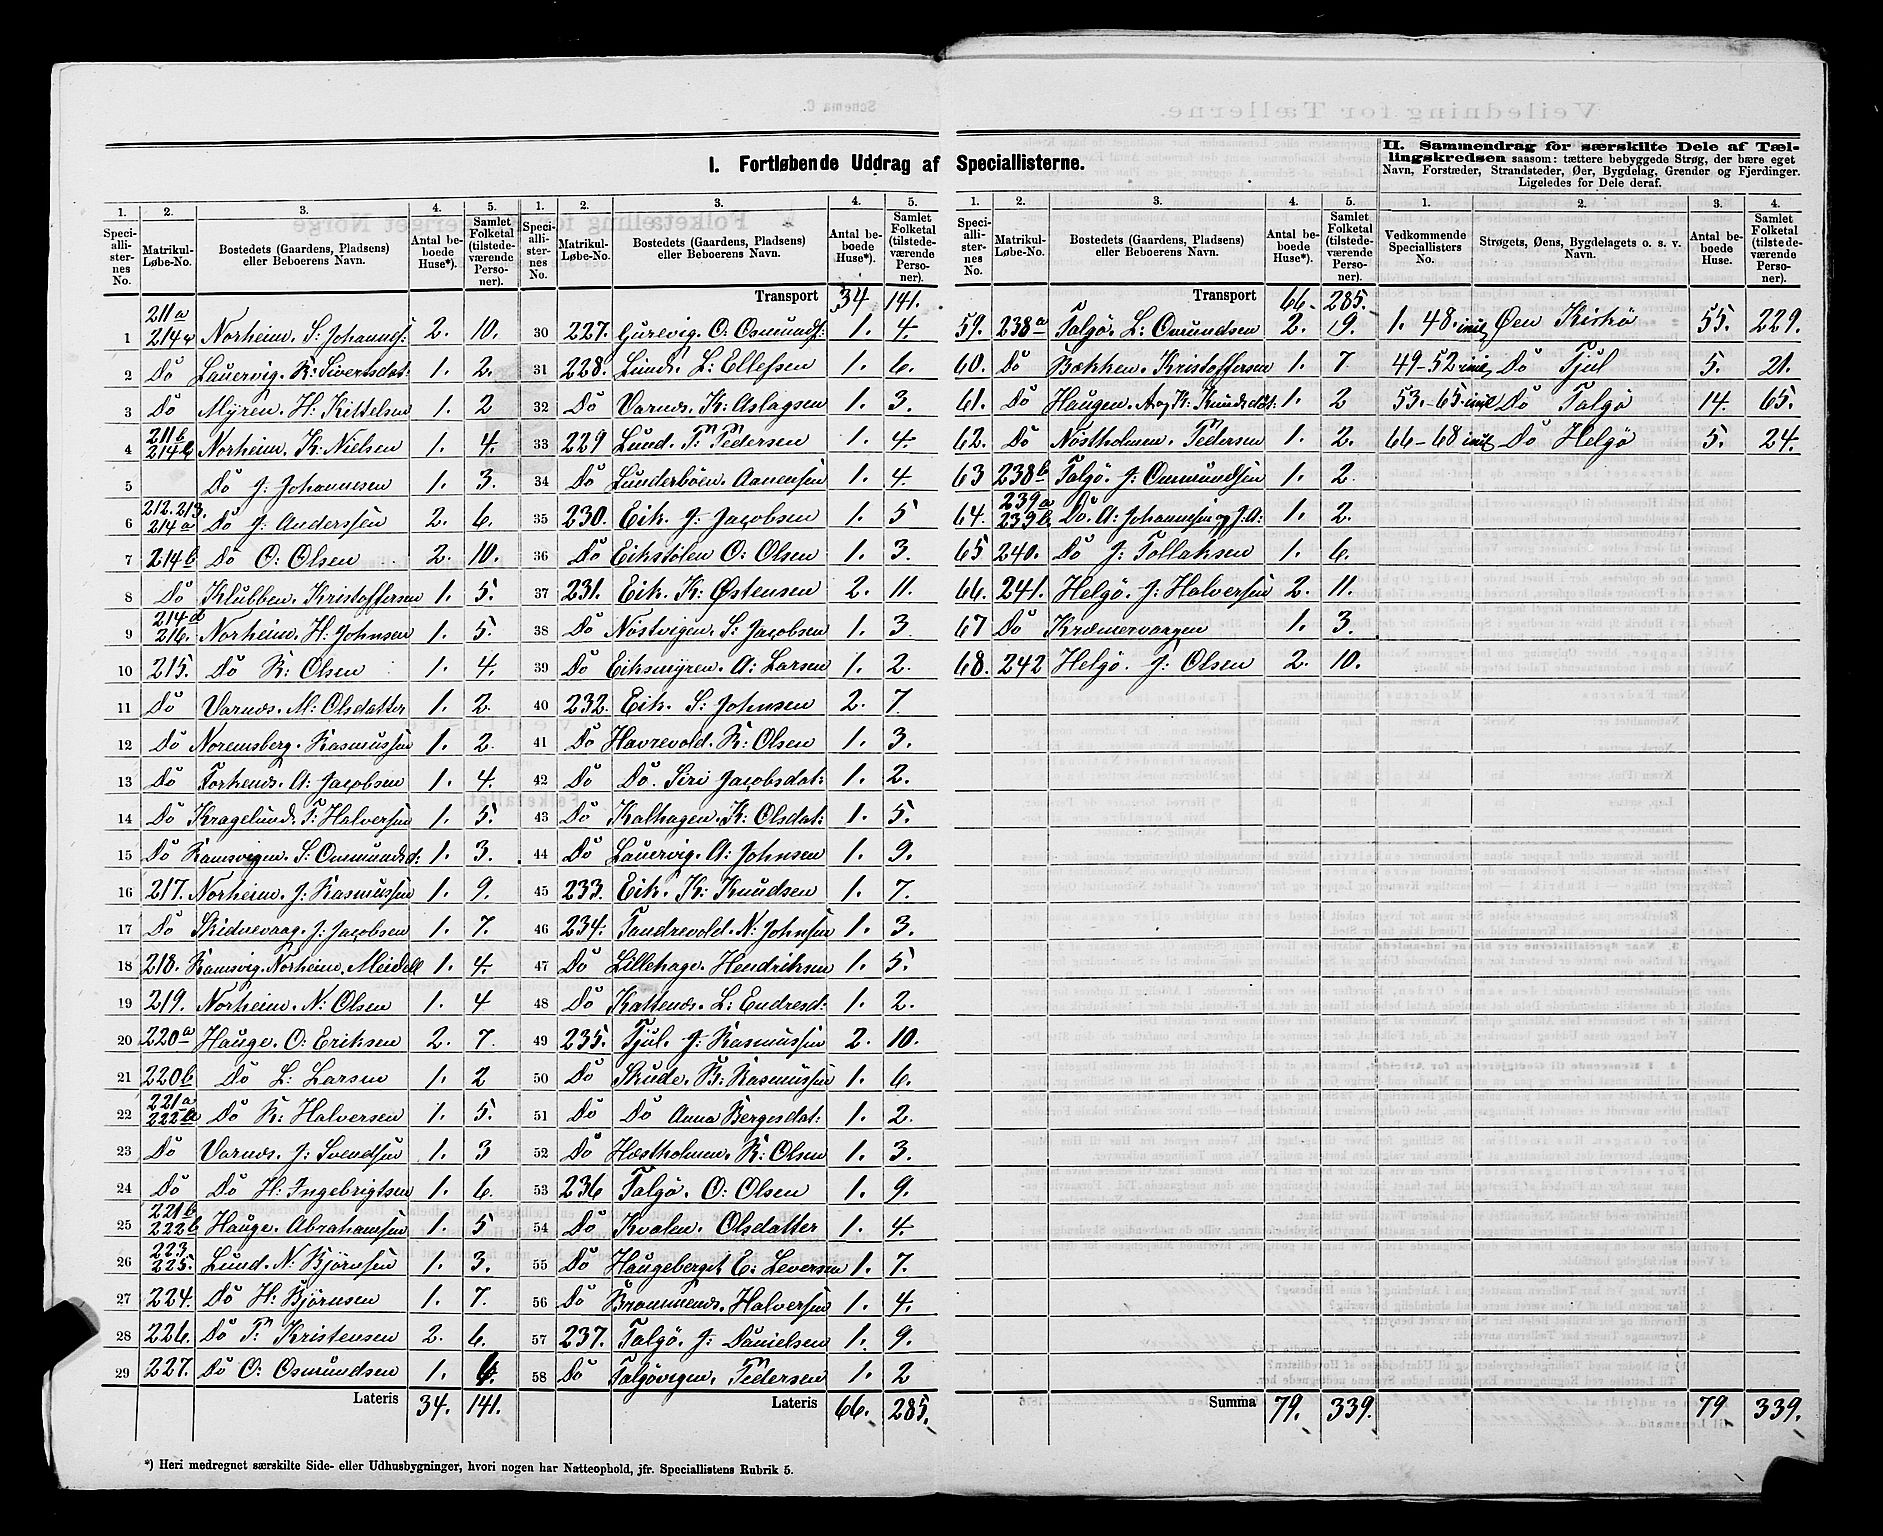 I. Fortløbende Uddrag af Speciallisterne.
1. Speciallisternes No.
2. Matrikul-Løbe-No.
3. Bostedets (Gaardens, Pladsens) eller Beboerens Navn.
4. Antal beboede Huse*).
5. Samlet Folketal (tilstedeværende Personer).
1 211a 214a Norheim. S: Johannes: 2. 10.
2 Do Lauervig. R: Sivertsdat: 1. 2.
3 Do Myren. H. Kittelsen 1. 2
4 211b 214b Norheim. K: Nielsen 1. 4.
5 Do J: Johannesen 1. 3.
6 212. 213. 214a Do J: Anderssen 2. 6.
7 214b Do O: Olsen 2. 10.
8 Do Klubben. Kristoffersen 1. 5.
9 216. Norheim. H: Johnsen 1. 5.
10 215. Do R: Olsen 1. 4.
11 Do Varnes. M: Olsdatter 1. 2.
12 Do Norensberg. Rasmussen 1. 2.
13 Do Torhens. A: Jacobsen 1. 4.
14 Do Kragelund. T: Halversen 1. 5.
15 Do Ramsvigen. S: Osmundsd: 1. 3.
16 217. Norheim. J: Rasmussen 1. 9.
17 Do Skidnevaag. J: Jacobsen 1. 7.
18 218. Ramsvig. Norheim. Meidell 1. 4.
19 219. Norheim. N: Olsen 1. 4
20 220a Hauge. O: Eriksen 2. 7.
21 220b Do L: Larsen 1. 2
22 221a 222a Do R: Halversen 1. 5.
23 Do Varnes. J: Svendsen 1. 3
24 Do Do H: Ingebrigtsen 1. 6.
25 221b 222b Hauge. Abrahamsen 1. 5
26 223. 225. Lund. N: Bjørnsen 1. 3.
27 224. Do H: Bjørnsen 1. 7.
28 226. Do Tn Kristensen 2. 6.
29 227. Do O: Osmundsen 1.
Lateris 34. 141.
1. Speciallisternes No.
2. Matrikul-Løbe-No.
3. Bostedets (Gaardens, Pladsens) eller Beboerens Navn.
4. Antal beboede Huse*).
5. Samlet Folketal (tilstedeværende Personer).
Transport 34 141.
30 227. Gurevig. O: Osmunds: 1. 4.
31 228. Lund. L: Ellefsen 1. 6.
32 Do Varnes. K: Aslagsen 1. 3.
33 229 Lund. Tn Pedersen 1. 4.
34 Do Lunderböen. Aanensen 1. 4
35 230. Eik. J: Jacobsen 1. 5
36 Do Eikstölen O: Olsen 1. 3.
37 231. Eik. K: Østensen 2. 11.
38 Do Nöstvigen. S: Jacobsen 1. 3
39 Do Eiksmyren. A: Larsen 1. 2.
40 232. Eik. S: Johnsen 2. 7.
41 Do Havrevold. R: Olsen 1. 3.
42 Do Do. Siri Jacobsdat: 1. 2.
43 Do Kalhagen. K: Olsdat: 1. 5.
44 Do Lauervig. A: Johnsen 1. 9.
45 233. Eik. K: Knudsen 1. 7.
46 234. Tandrevold. N: Johnsen 1. 3.
47 Do Lillehage. Hendriksen 1. 5.
48 Do Kattenes. L: Endresd: 1. 2.
49 235. Tjul. J: Rasmussen 2. 10.
50 Do Skude. B: Rasmussen 1. 6.
51 Do Do Anna Bergesdat: 1. 2.
52 Do Hestholmen. R: Olsen 1. 3.
53 236 Talgö. O: Olsen 1. 9.
54 Do Kvalen. Olsdatter 1. 4.
55 Do Haugeberget. E: Leversen 1. 7.
56 Do Halversen 1. 4.
57 237. Talgö. J: Danielsen 1. 9.
58 Do Talgövigen. Pedersen 1. 2
Lateris 66. 285.
1. Speciallisternes No.
2. Matrikul-Løbe-No.
3. Bostedets (Gaardens, Pladsens) eller Beboerens Navn.
4. Antal beboede Huse*).
5. Samlet Folketal (tilstedeværende Personer).
Transport 66. 285.
59. 238a Talgö. L: Omundsen 2. 9.
60. Do Bækken. Kristoffersen 1. 7
61. Do Haugen. A og K: Knudsdat. 1. 2
62. Do Nöstholmen. Pedersen 1. 2.
63 238b Talgö. J: Ommundsen 1. 2.
64. 239a 239b Do. A: Johannesen og J. A: 1. 2.
65 240. Do J: Tollaksen 1. 6.
66. 241. Helgö. J: Halversen 2. 11.
67 Do Kræmervaagen 1. 3.
68. 242 Helgö. J: Olsen 2. 10.
Summa 79. 339.
II. Sammendrag for særskilte Dele af Tællingskredsen saasom: tættere bebyggede Strøg, der bære eget
Navn, Forstæder, Strandsteder, Øer, Bygdelag, Grender og Fjerdinger.
Ligeledes for Dele deraf.
1. Vedkommende Speciallisters No.
2. Strøgets, Øens, Bygdelagets o. s. v. Navn.
3. Antal beboede Huse.
4. Samlet Folketal (tilstedeværende Personer).
1. 48. incl Øen 55. 229.
49-52 incl Do Tjul 5. 21.
53. -65. incl Do Talgö 14. 65.
66-68 incl Do Helgö 5. 24.
79 339.
*) Heri medregnet særskilte Side- eller Udhusbygninger, hvori nogen har Natteophold, jfr. Speciallistens Rubrik 5.